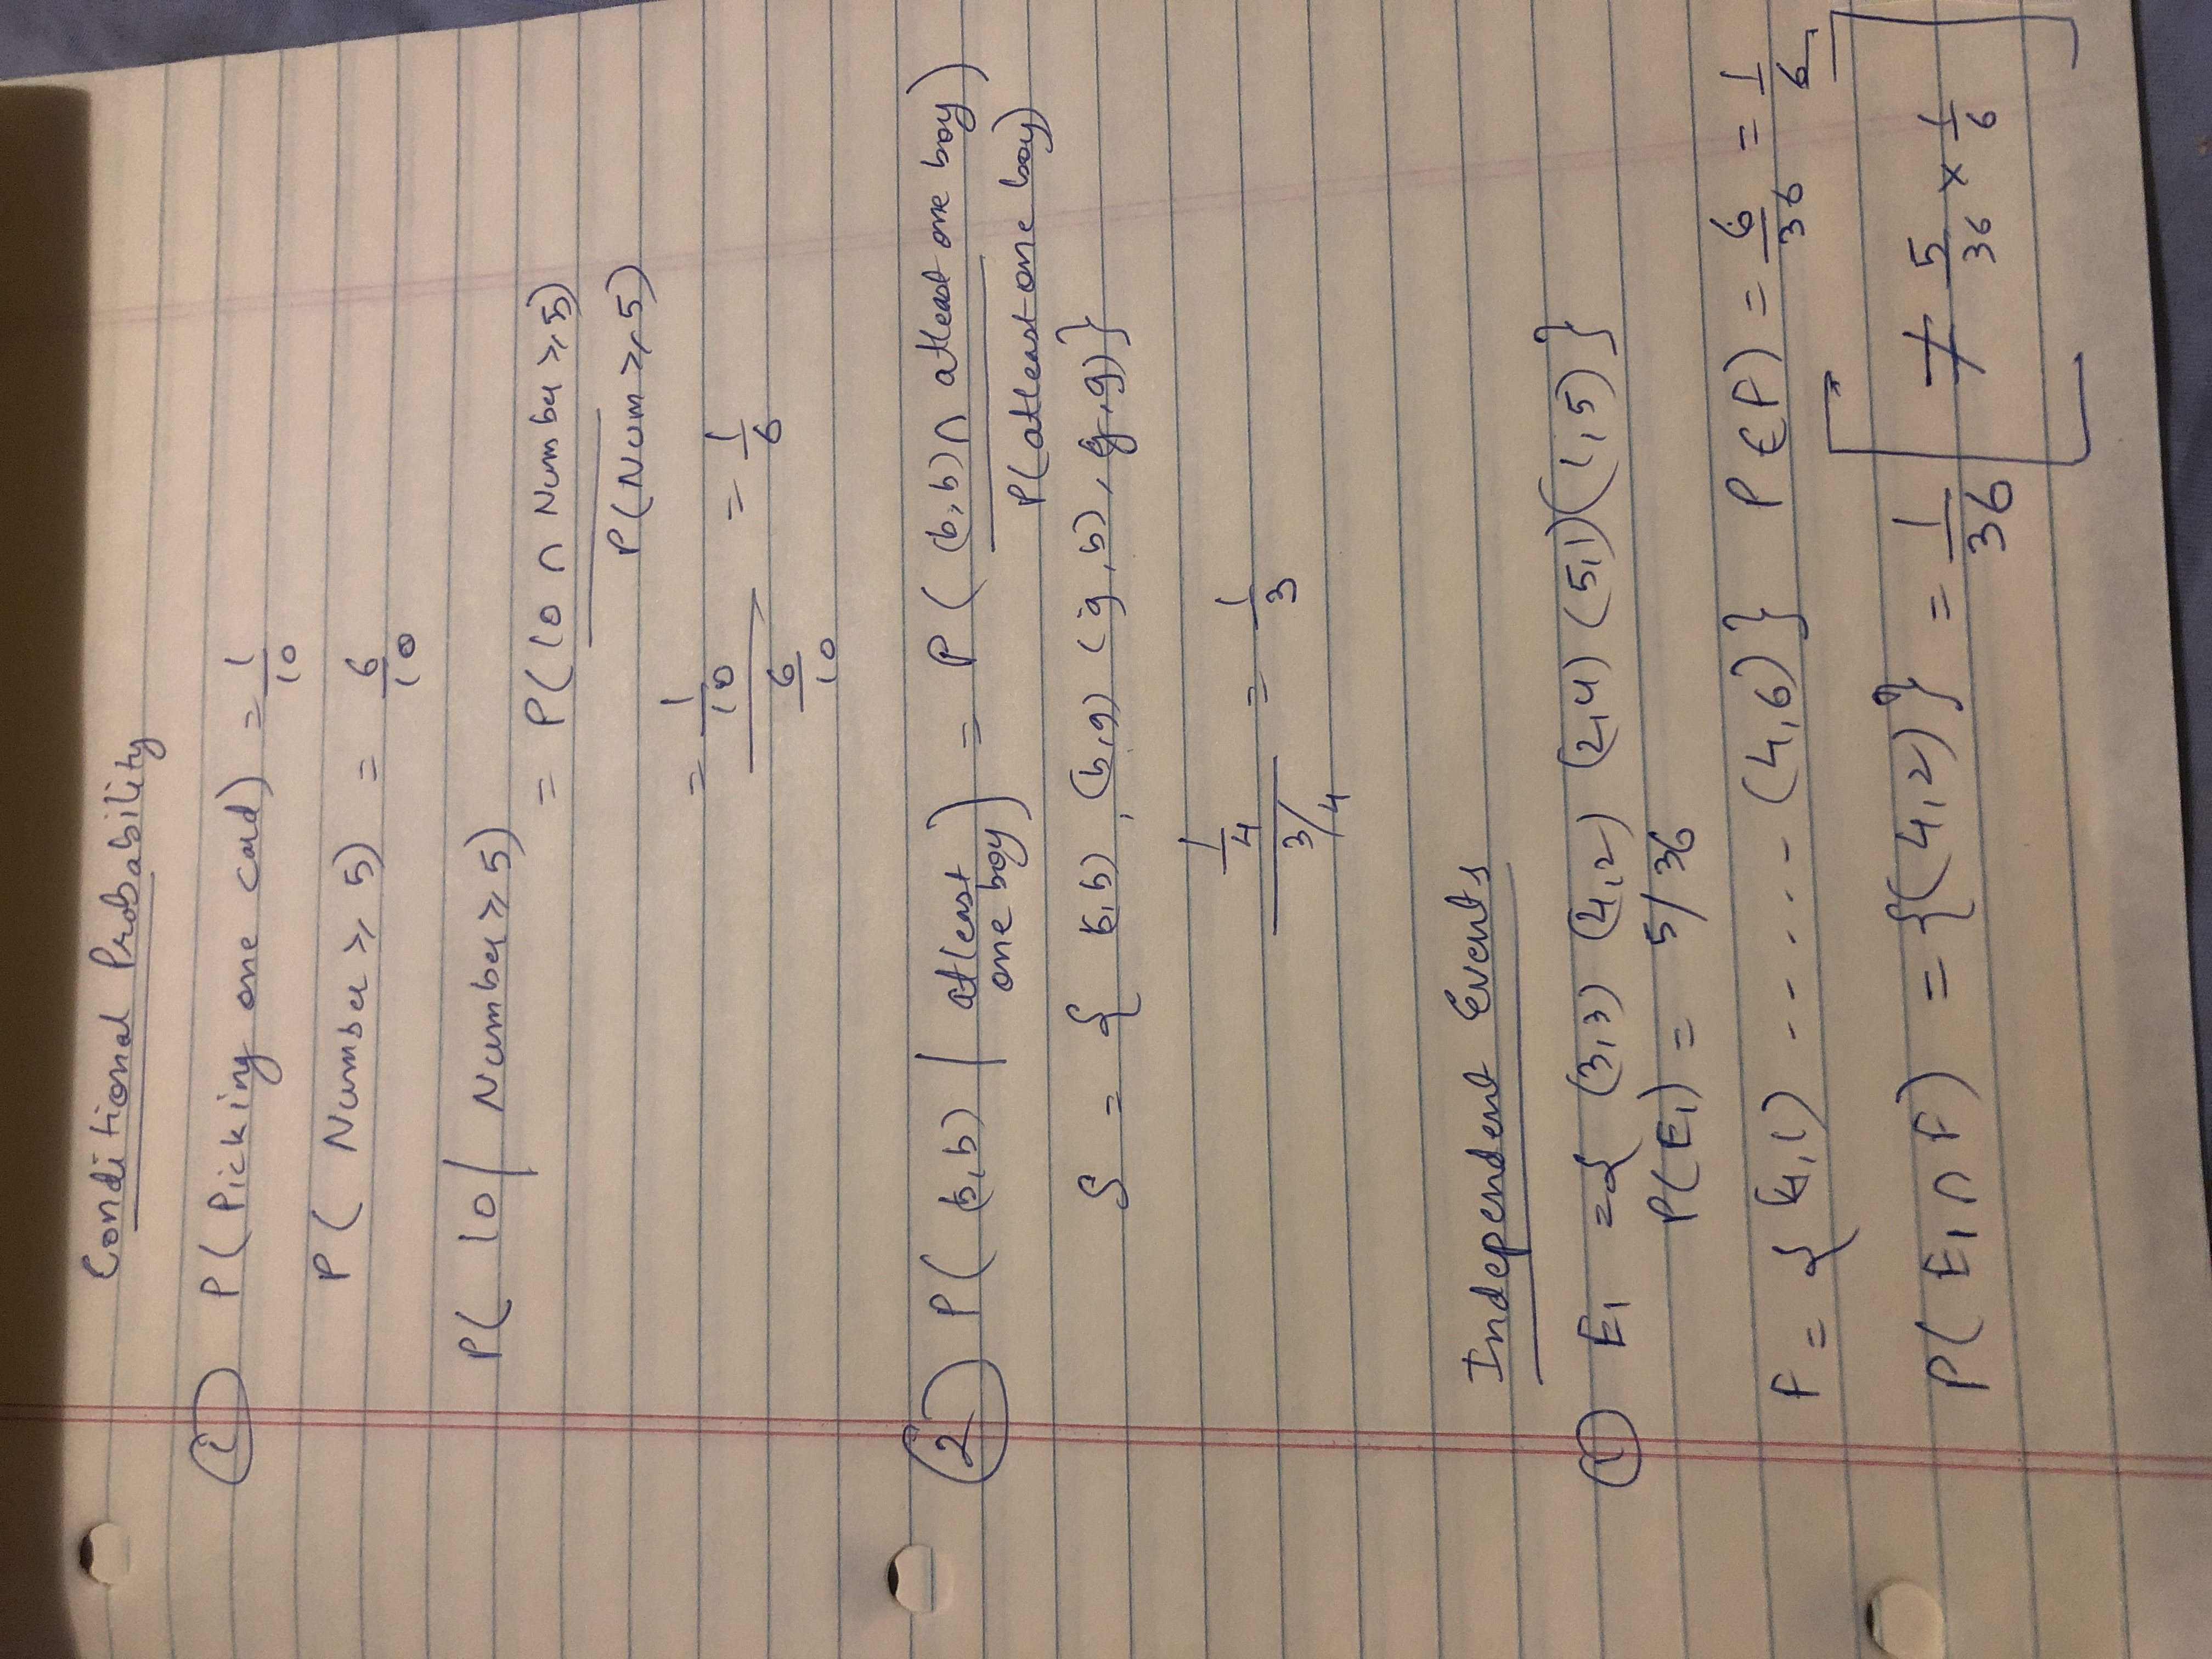 Conditional Probability
① P( Picking one card) = 1/10
P( Number ≥ 5) = 6/10
P( 10 | Number ≥ 5)
= P(10 ∩ Number ≥ 5)
P(Num ≥ 5)
= 1/10 / 6/10 = 1/6
② P( (b,b) | atleast one boy) = P( (b,b) ∩ atleast one boy)
P(atleast one boy)
S = { (b,b) , (b,g) (g,b), (g,g)}
1/4 / 3/4 = 1/3
Independent Events
① E₁ = { (3,3) (4,2) (2,4) (5,1) (1,5) }
P(E₁) = 5/36
F = { (4,1) ------ (4,6) } P(F) = 6/36 = 1/6
P( E₁ ∩ F) = {(4,2)} = 1/36 [ ≠ 5/36 × 1/6 ]